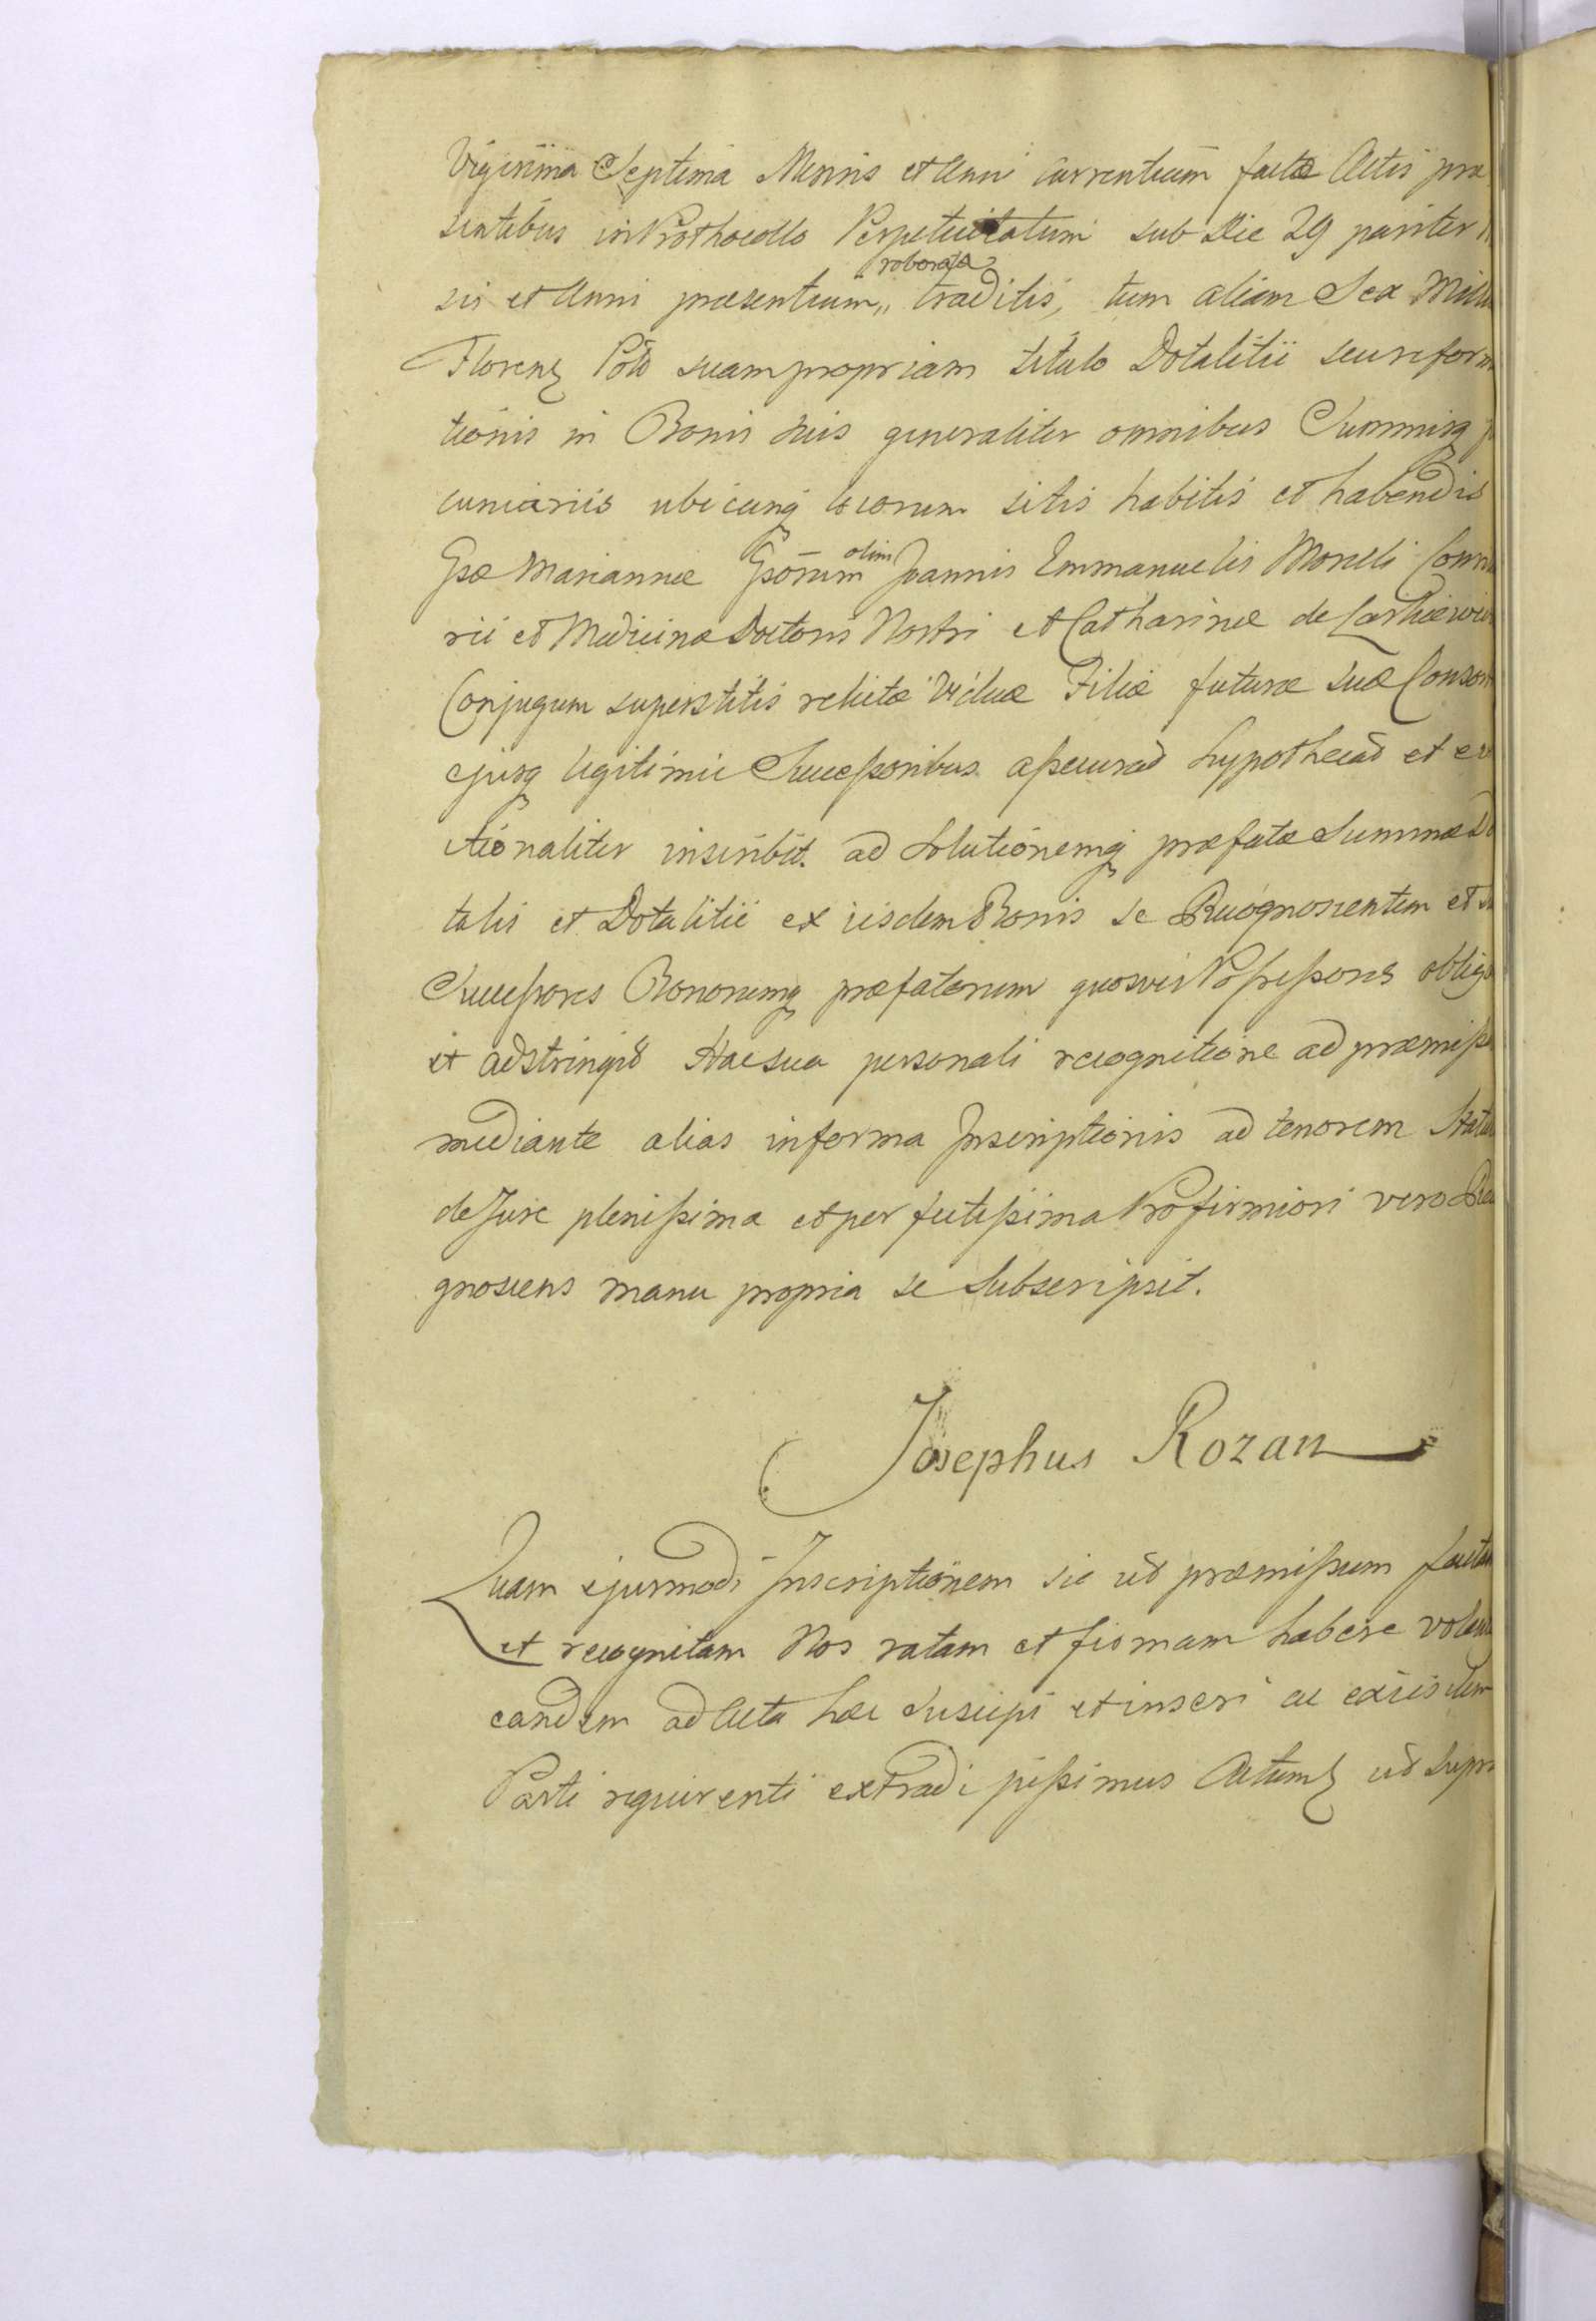 Vigesima Septima Mensis et Anni currentium factæ Actis præ
sentibus in Prothocollo Perpetuitatum sub Die 29 pariter
roborata
sis et Anni præsentium,, traditis, tum aliam Sex Mille
Florenz Polo suam propriam titulo Dotalitii seu reforma
tionis in Bonis suis generaliter omnibus Summisq
cuniariis ubicunq locorum sitis habitis et habendis
olim
Gsæ Mariannæ Gsorum Joannis Emmanuelis Morelli Con
rii et Medicinæ Doctoris Nostri et Catharinæ de
Conjugum superstitis relictæ Viduæ Filiæ futuræ suæ Consor
ejusq legitimis Successoribus assecurad hypothecad et
ctionaliter inscribit. ad Solutionemq præfatæ Summæ Do
talis et Dotalitii ex iisdem Bonis se Recognoscentem et
Successores Bonorumq præfatorum quosvis Possessores oblig
et adstringit Hac sua personali recognitione ad præmiss
mediante alias in forma Inscriptionis ad tenorem Statu
de Jure plenissima et perfectissima Pro firmiori vero Re
gnoscens manu propria se Subscripsit.
Josephus Rozan
Quam ejusmodi Inscriptionem sic ut præmissum factam
et recognitam Nos ratam et firmam habere volen
eandem ad Acta hæc Suscipi et inseri ac ex iisdem
Parti requirenti extradi jussimus Actum ut Supra